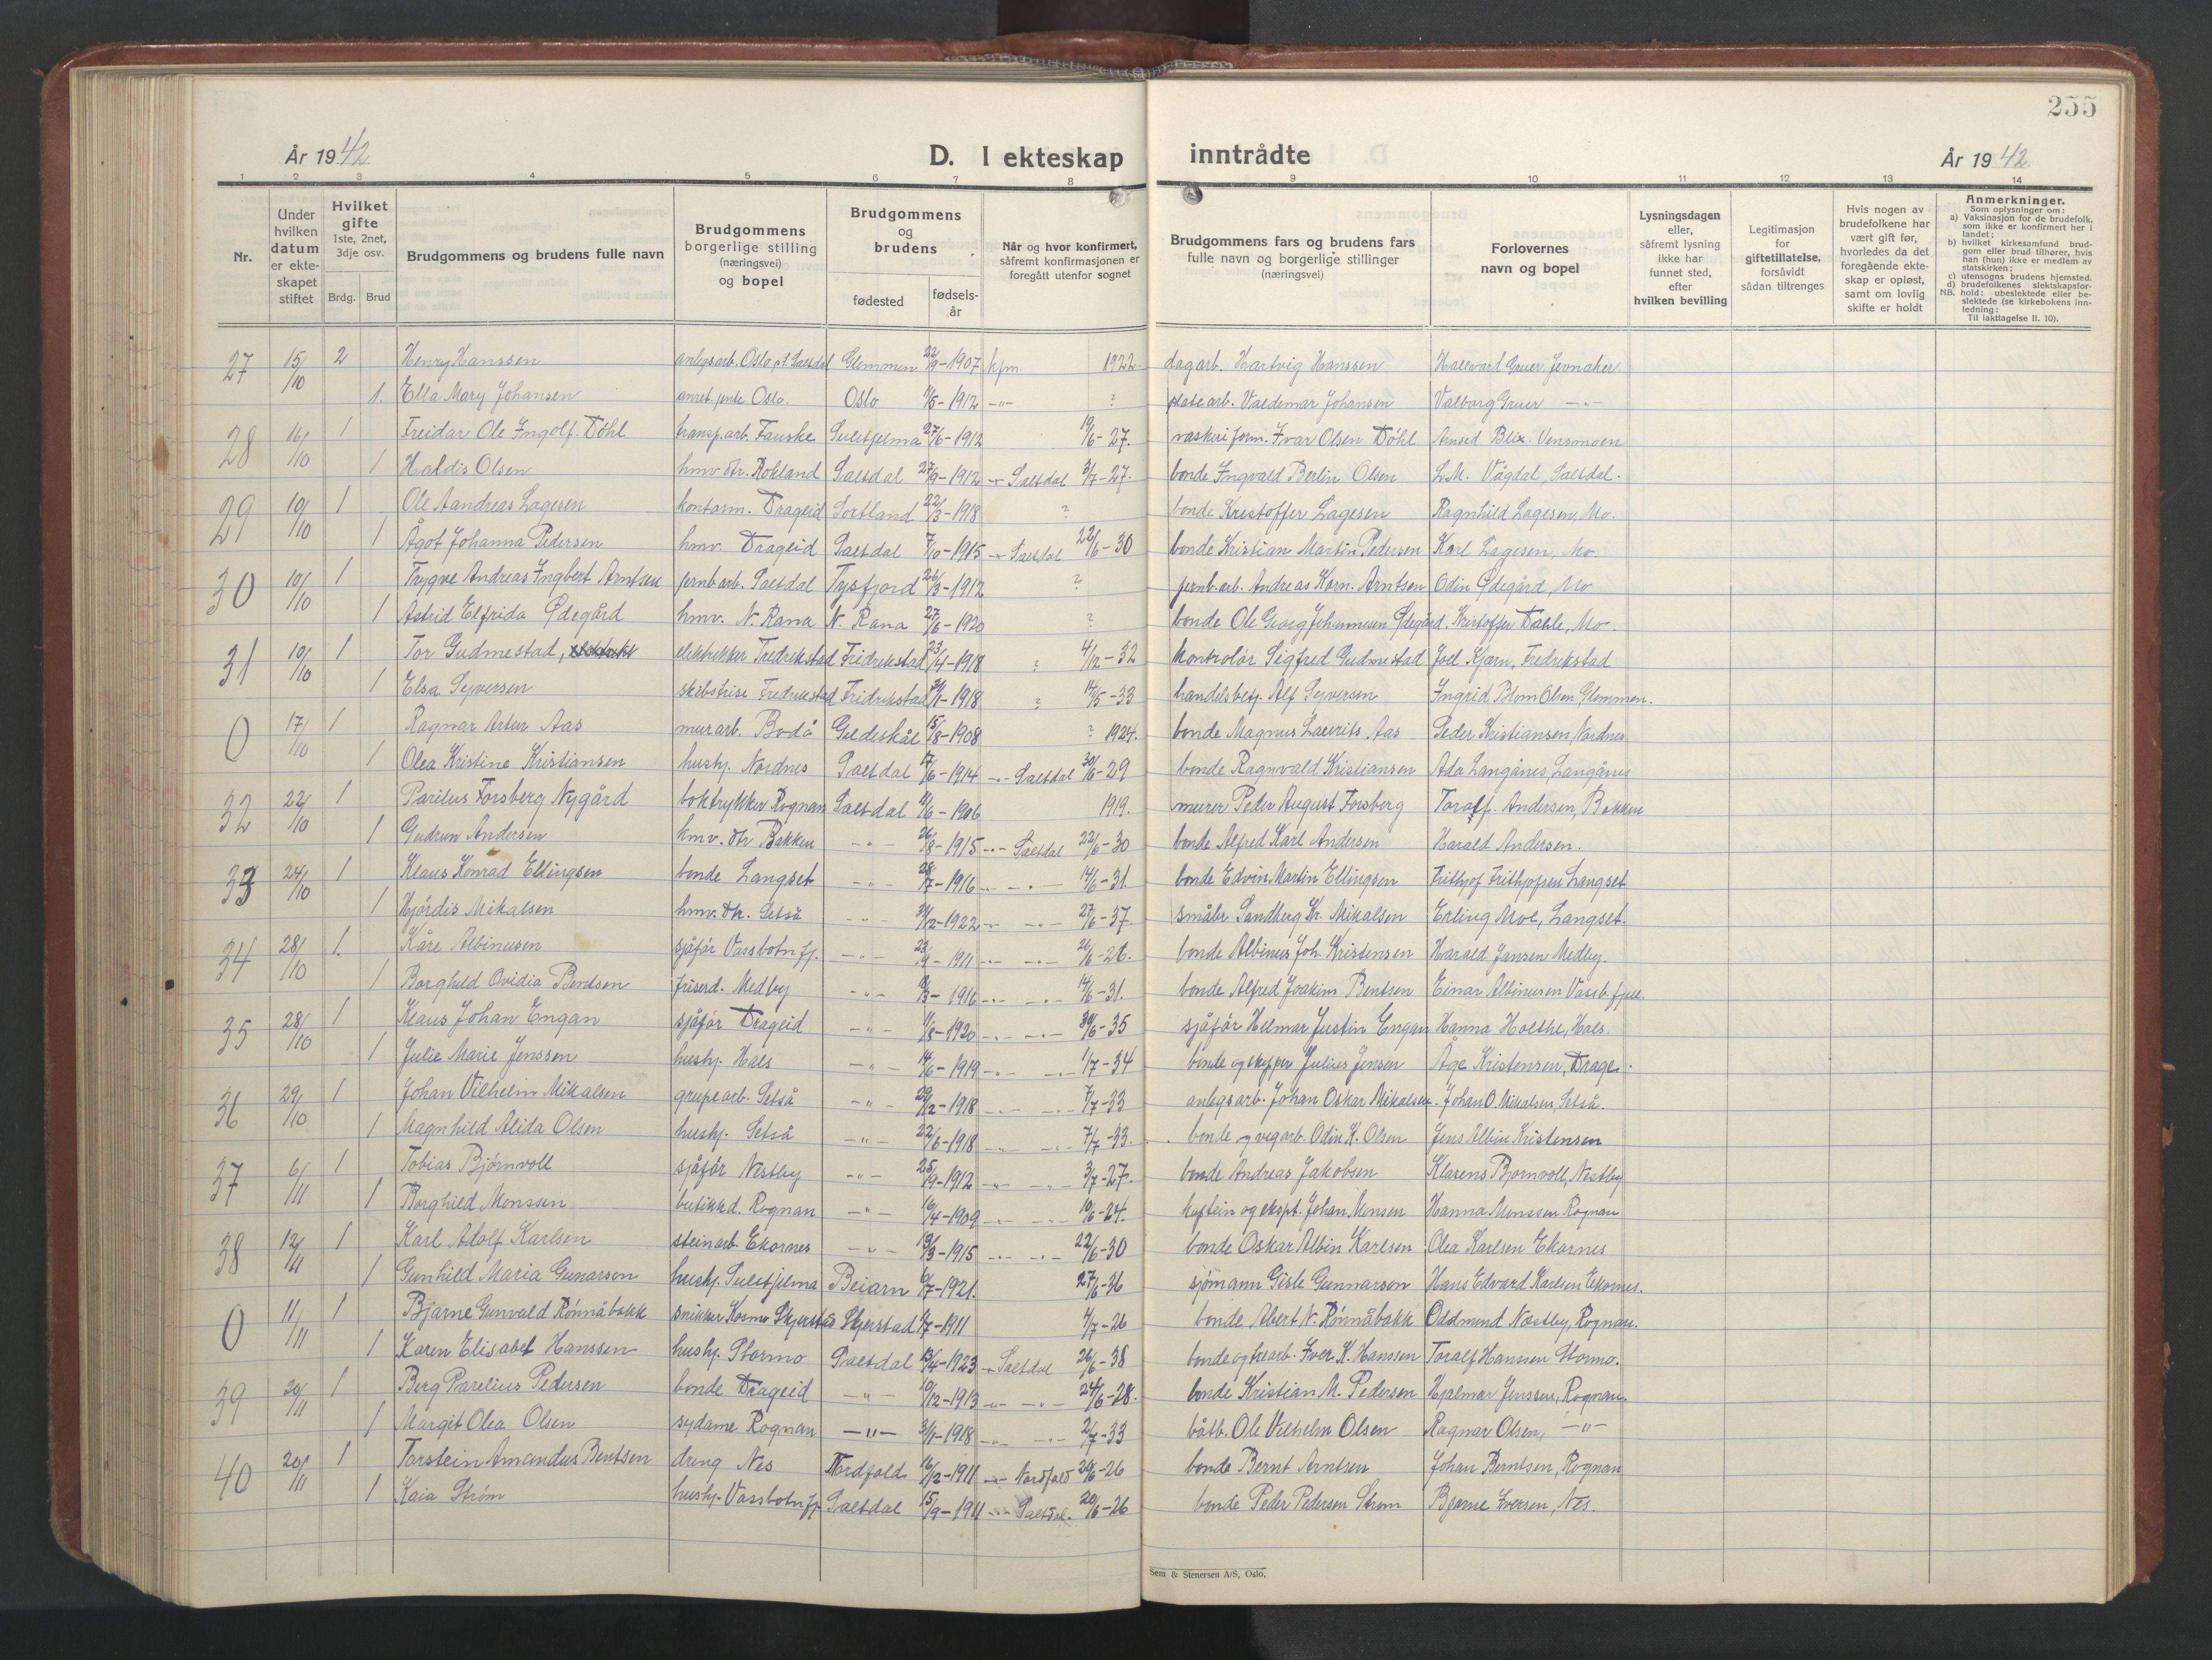 255
År 1942
D. I ekteskap inntrådte
År 1942
1 2 3 4 5 6 7 8 9 10 11 12 13 14
Nr.
Under hvilken datum er ekteskapet stiftet
Hvilket gifte 1ste, 2net, 3dje osv.
Brdg. Brud
Brudgommens og brudens fulle navn
Brudgommens borgerlige stilling (næringsvei) og bopel
Brudgommens og brudens
fødested
fødselsår
Når og hvor konfirmert, såfremt konfirmasjonen er foregått utenfor sognet
Brudgommens fars og brudens fars fulle navn og borgerlige stillinger (næringsvei)
Forlovernes navn og bopel
Lysningsdagen eller, såfremt lysning ikke har funnet sted, efter hvilken bevilling
Legitimasjon for giftetillatelse, forsåvidt sådan tiltrenges
Hvis nogen av brudefolkene har vært gift før, hvorledes da det foregående ekteskap er opløst, samt om lovlig skifte er holdt
Anmerkninger.
Som oplysninger om:
a) Vaksinasjon for de brudefolk, som ikke er konfirmert her i landet;
b) hvilket kirkesamfund brudgom eller brud tilhører, hvis han (hun) ikke er medlem av statskirken;
c) utensogns brudens hjemsted.
d) brudefolkenes slektskapsforhold: ubeslektede eller beslektede (se kirkebokens innledning:
NB.
Til iakttagelse II. 10).
27 15/10 2 Henry Hanssen anlegsarb. Oslo p.t. Saltdal Glemmen 22/9-1907 kfm. 1922. dagarb. Hartvig Hanssen Hallvard Gruer Jevnaker
1. Ella Mary Johansen Oslo. Oslo -1912 -"- ? platearb. Valdemar Johansen Valborg Gruer -"-
28 16/10 1 Freidar Ole Ingolf Döhl transp.arb. Fauske Sulitjelma 27/6-1912 19/6-27. Ivar Olsen Döhl Blix Vensmoen
1 Haldis Olsen hmv. dtr. Rokland Saltdal 27/9-1912 Saltdal 3/7-27. bonde Ingvald Berlin Olsen L.M. Vågdal, Saltdal.
29 10/10 1 Ole Aandreas Lagesen kontorm. Drageid Sortland 22/3-1918 ? bonde Kristoffer Lagesen Ragnhild Lagesen, Mo.
1 Ågot Johanna Pedersen hmv. Drageid Saltdal 7/10-1915 Saltdal 22/6-30 bonde Kristian Martin Pedersen Karl Lagesen, Mo.
30 10/10 1 Trygve Andreas Ingbert Arntsen jernb.arb. Saltdal Tysfjord 26/3-1912 ? jernb.arb. Andreas Korn. Arntsen Odin Ødegård, Mo
1 Astrid Elfrida Ødegård hmv. N. Rana N. Rana 27/6-1920 ? bonde Ole Georg Johannesen Ødegård. Kristoffer Dahle, Mo.
31 10/10 1 Tor Gudmestad, elektriker Fredrikstad Fridrikstad 23/4-1918 ? 4/12-32 kontrolör Sigfred Gudmestad Joel Kjærn, Fredrikstad
1 Elsa Syversen Fredrikstad Fridrikstad -1918 ? 14/5-33 handelsbetj. Alf Syversen Ingrid Blom Olsen Glemmen.
0 17/10 1 Ragnar Artur Aas murarb. Bodö Gildeskål 15/8-1908 ? 1924. bonde Magnus Laurits Aas Peder Kristiansen, Nordnes
1 Olea Kristine Kristiansen hushj. Nordnes Saltdal 17/6-1914 Saltdal 30/6-29 bonde Ragnvald Kristiansen Ada Langånes, Langånes
32 22/10 1 Parilus Forsberg Nygård boktrykker Rognan Saltdal -1906 1919. murer Peder August Forsberg Toralf. Andersen, Bakken
1 Gudrun Andersen hmv. dtr Bakken -"- 26/8-1915 Saltdal 22/6-30 bonde Alfred Karl Andersen Harald Andersen.
33 24/10 1 Klaus Konrad Ellingsen bonde Langset -"- 28/7-1916 -"- 14/6-31 bonde Edvin Martin Ellingsen Frithjof Frithjofsen Langset
1 Hjördis Mikalsen hmv. dtr. Setså -"- -1922 -"- 27/6-37 småbr Sandberg Kr. Mikalsen Erling Moe, Langset.
34 28/10 1. Kåre Albinusen sjåfør Vassbotnfj. -"- 23/9-1911 -"- 26/6-26. bonde Albinus Joh. Kristensen Harald Jansen Medby.
1 Borghild Ovidia Bentsen friserd. Medby -"- -1916 -"- 14/6-31. bonde Alfred Joakim Bentsen Einar Albinusen Vassb.fjell.
35 28/10 1 Klaus Johan Engan sjåfør Drageid -"- 1/8-1920 -"- 30/6-35 sjåfør Hilmar Justin Engan Hanna Holthe, Hals.
1 Julie Marie Jenssen hushj. Hals -"- 14/6-1919 -"- 1/7-34 bonde og skipper Julius Jensen Åge Kristensen, Drage.
36 29/10 1 Johan Vilhelm Mikalsen grupearb. Setså -"- 29/12-1918 -"- 7/7-33 anlegsarb. Johan Oskar Mikalsen. Johan O. Mikalsen, Setså.
1 Magnhild Alida Olsen hushj. Setså -"- 22/6-1918 -"- 7/7-33. bonde og vegarb. Odin K. Olsen Jens Albin Kristensen
37 6/11 1 Tobias Bjørnvoll sjåfør Nestby -"- 25/9-1912 -"- 3/7-27. bonde Andreas Jakobsen Klarens Bjørnvoll, Nestby
1 Borghild Monssen butikkd. Rognan -"- 16/4-1909 -"- 10/6-24. kaptein og ekspt. Johan Monsen Hanna Monssen Rognan
38 12/11 1 Karl Adolf Karlsen steinarb. Ekornes -"- 13/3-1915 -"- 22/6-30 bonde Oskar Albin Karlsen Olea Karlsen Ekornes
1 Gunhild Maria Gunarson hushj. Sulitjelma Beiarn -1921. 27/6-36 sjömann Gisle Gunnarson Hans Edvard Karlsen Ekornes.
0 11/11 1 Bjarne Gunvald Rönnåbakk snikker Kosmo Skjerstad Skjerstad -1911 4/7-26 bonde Albert N. Rönnåbakk Oddmund Næstby, Rognan.
1 Karen Elisabet Hanssen hushj. Stormo Saltdal 13/4-1923 Saltdal 26/6-38 bonde og trearb. Iver K. Hanssen Toralf Hanssen Stormo.
39 20/11 1 Berg Parelius Pedersen bonde Drageid -"- 10/12-1913 -"- 24/6-28. bonde Kristian M. Pedersen Hjalmar Jenssen, Rognan.
1 Margit Olea Olsen sydame Rognan -"- 3/1-1918 -"- 2/7-33 båtb. Ole Vilhelm Olsen Ragnar Olsen, -"-
40 20/11 1 Torstein Amandus Bentsen dreng Nes Nordfold 16/12-1911 Nordfold 20/6-26 bonde Bernt Arntsen Johan Berntsen, Rognan
1 Kaia Strøm hushj. Vassbotnfj. Saltdal 15/9-1911 Saltdal. 20/6-26 bonde Peder Pedersen Strøm Bjarne Iversen, Nes.
Sem & Stenersen A/S, Oslo.